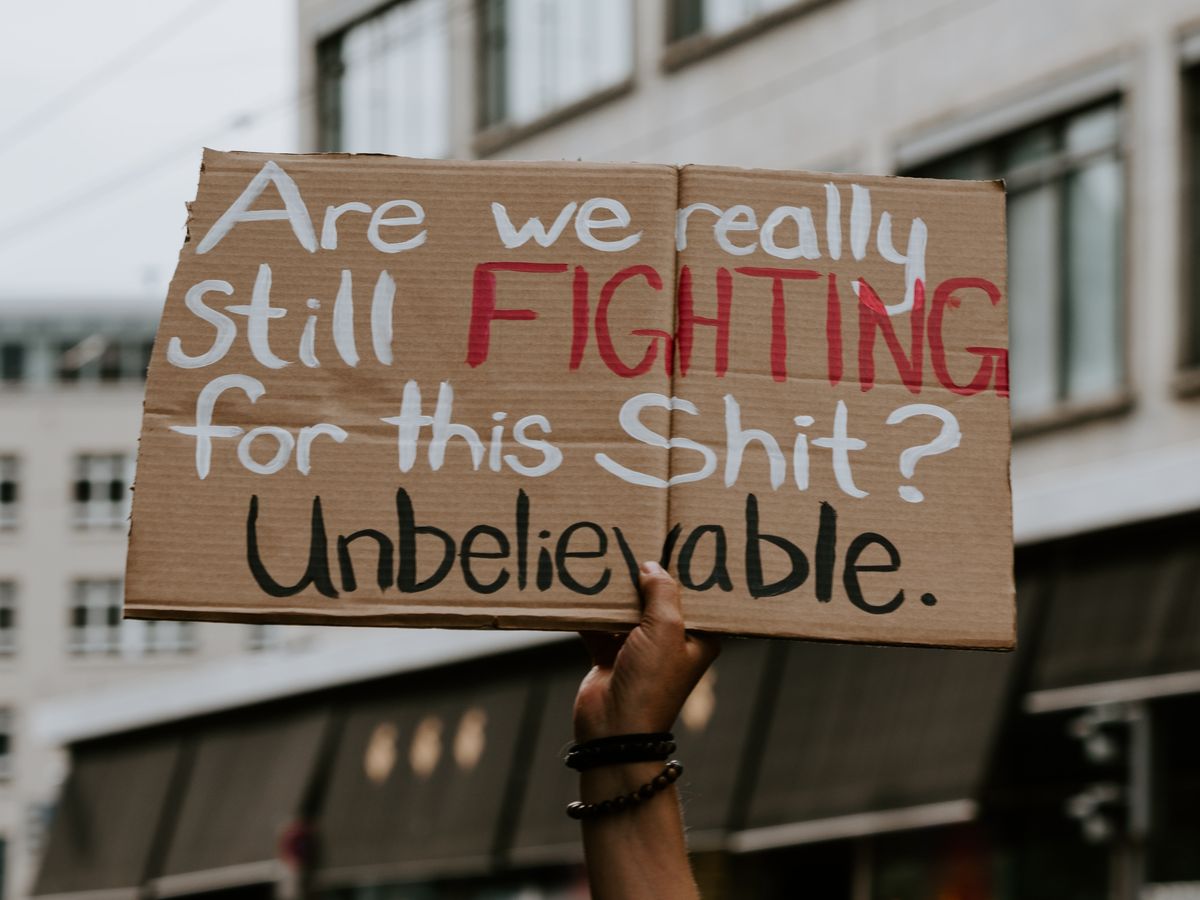 Are we really
Still FIGHTING
for this Shit?
Unbelievable.